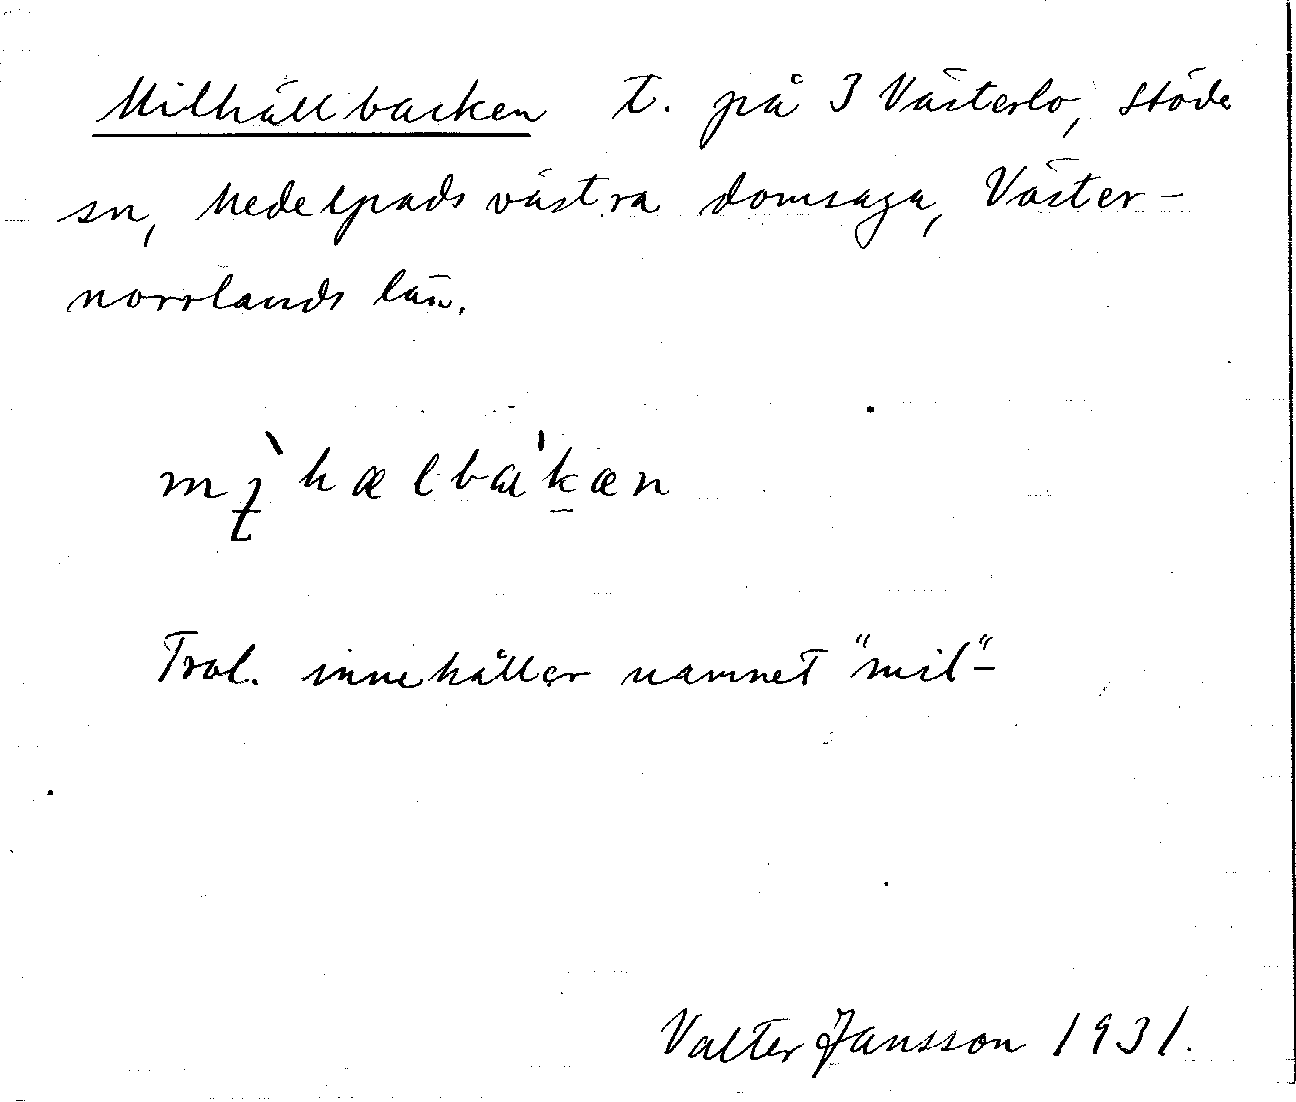 Milhällbacken t. på 3 Västerlo, Stöde
sn, Medelpads västra domsaga, Väster-
norrlands län.
mı̨̀hælba'kæn
Trol. innehåller namnet "mil"-
Valter Jansson 1931.